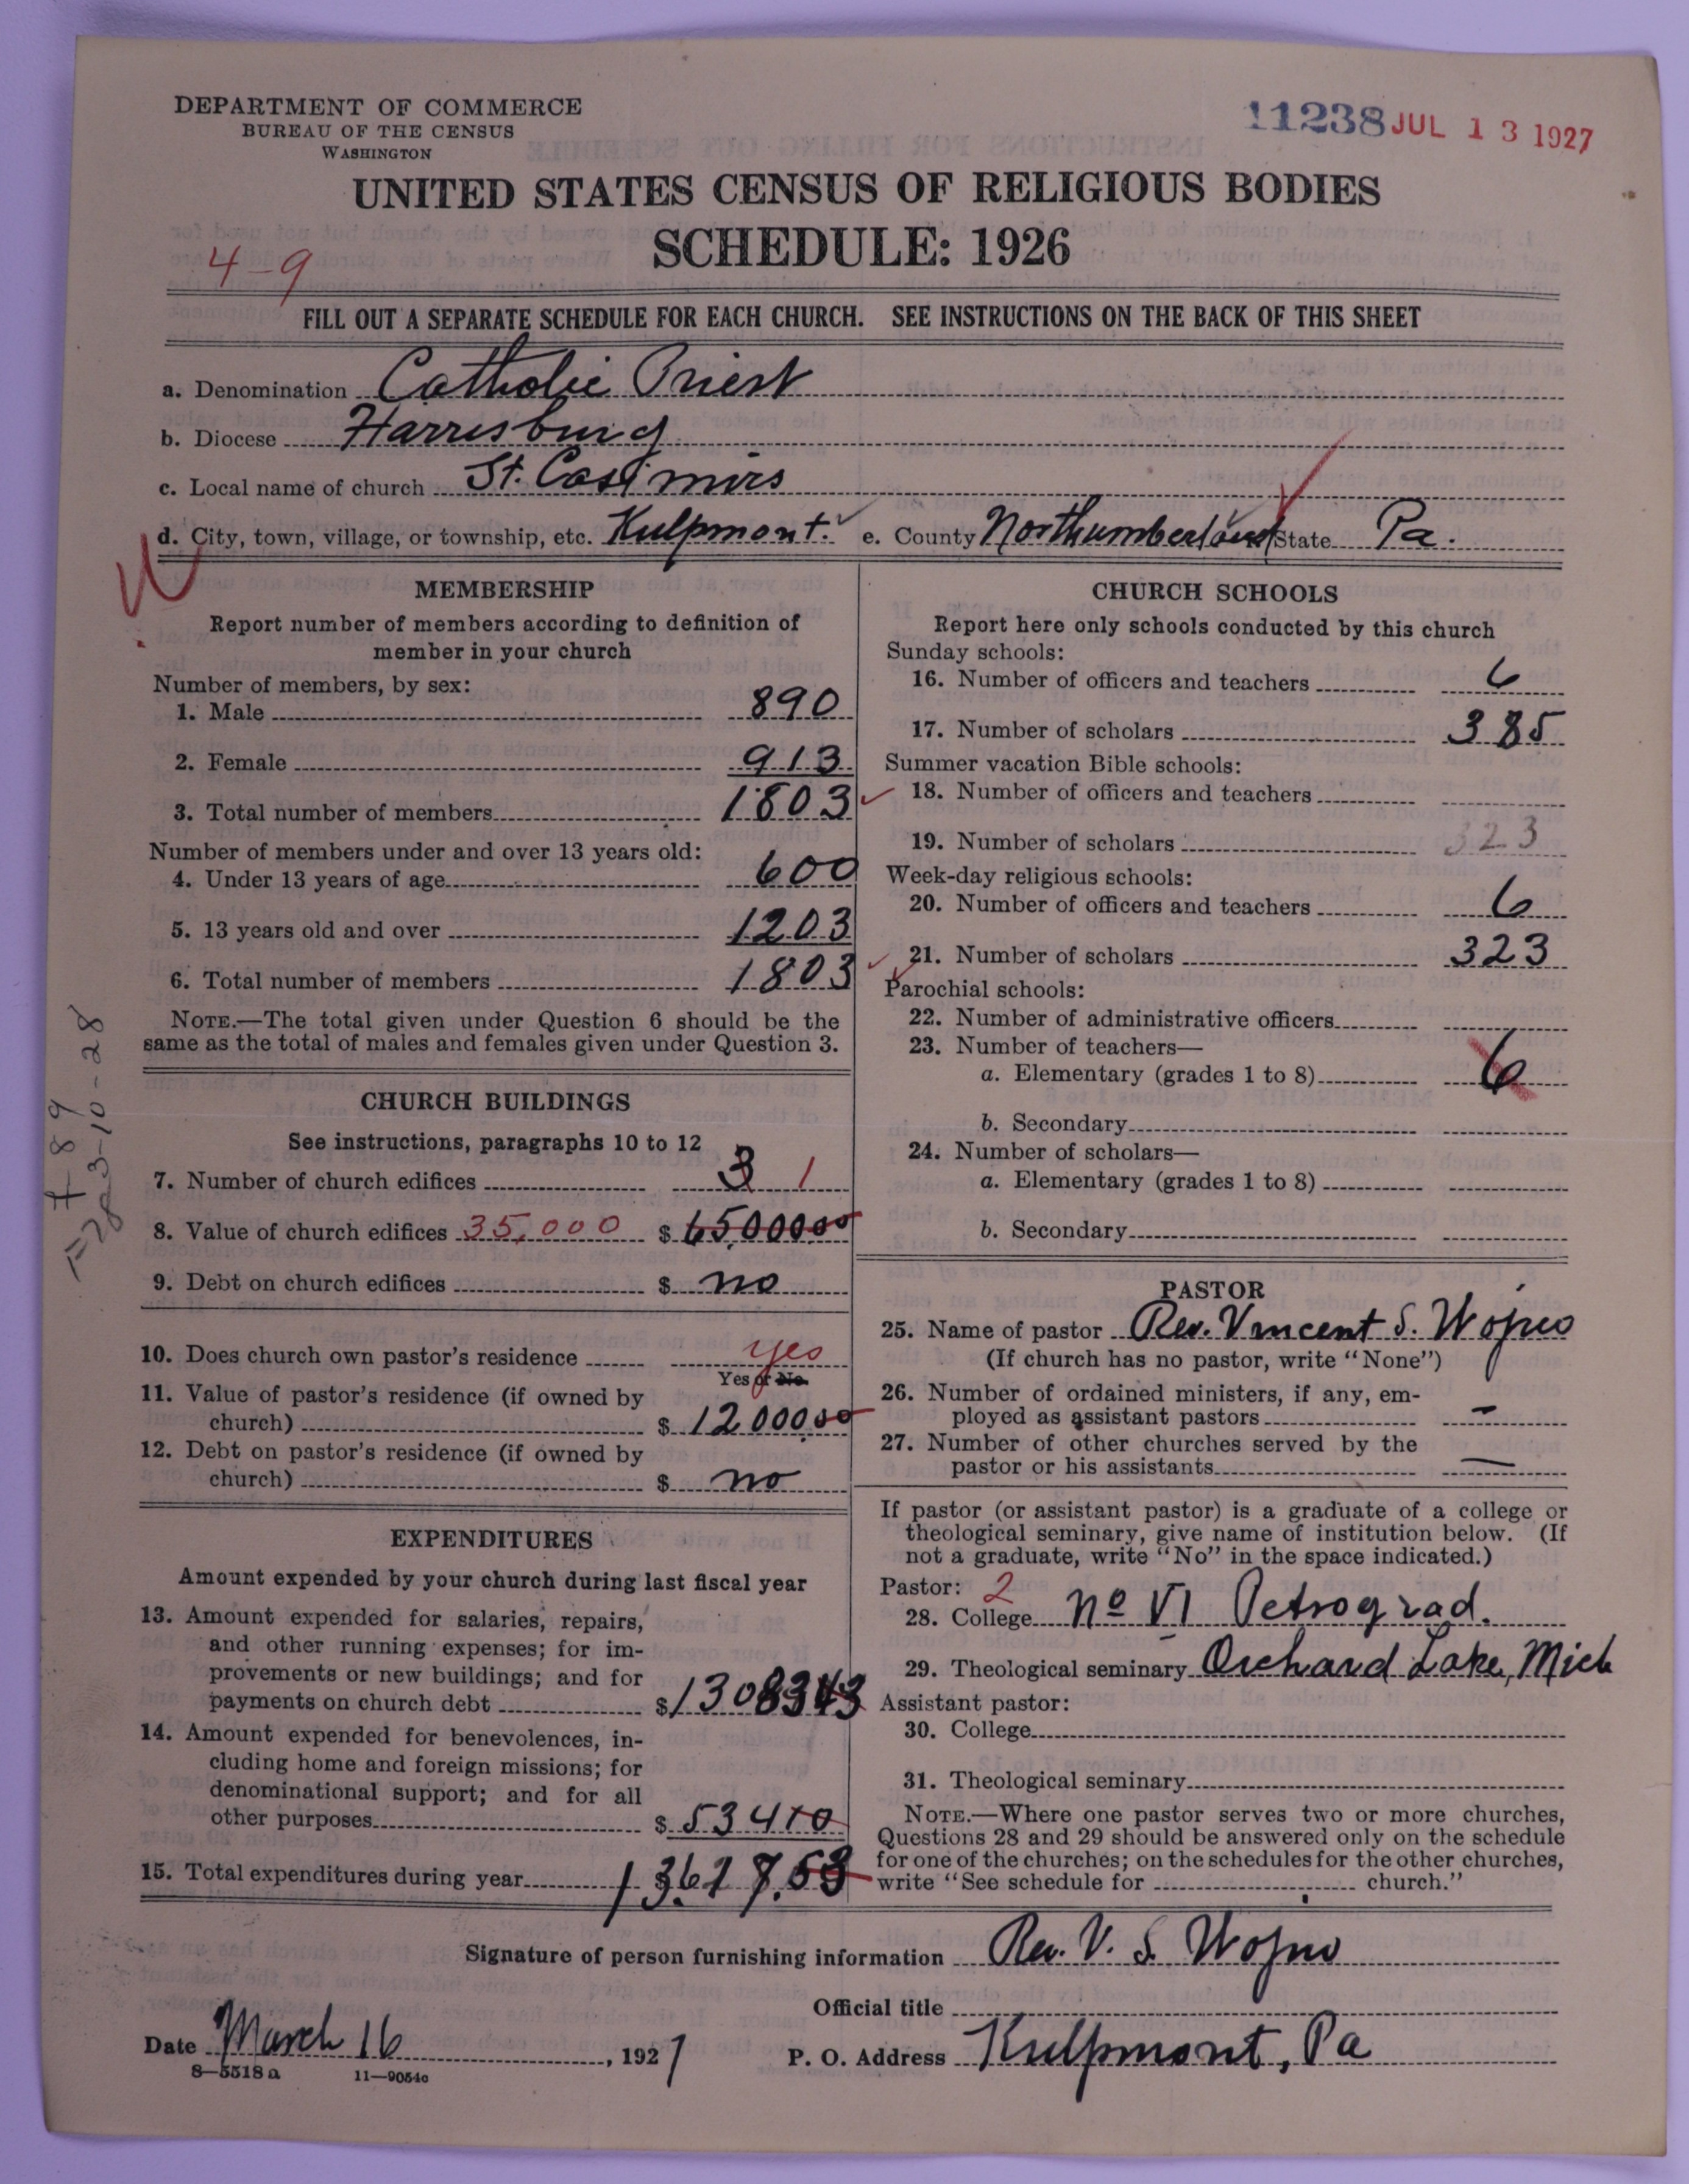 DEPARTMENT OF COMMERCE
BUREAU OF THE CENSUS
WASHINGTON
11238 JUL 13 1927
UNITED STATES CENSUS OF RELIGIOUS BODIES
SCHEDULE: 1926
4-9
FILL OUT A SEPARATE SCHEDULE FOR EACH CHURCH. SEE INSTRUCTIONS ON THE BACK OF THIS SHEET
a. Denomination Catholic Priest
b. Diocese Harrisburg
c. Local name of church St. Casimirs
d. City, town, village, or township, etc. Kulpmont. e. County Northumberland State Pa.
MEMBERSHIP
Report number of members according to definition of
member in your church
Number of members, by sex:
1. Male 890
2. Female 913
3. Total number of members 1803
Number of members under and over 13 years old:
4. Under 13 years of age 600
5. 13 years old and over 1203
6. Total number of members 1803
NOTE.—The total given under Question 6 should be the
same as the total of males and females given under Question 3.
CHURCH BUILDINGS
See instructions, paragraphs 10 to 12
7. Number of church edifices 3 1
8. Value of church edifices 35,000 $ 65,00000
9. Debt on church edifices $ no
10. Does church own pastor's residence yes
Yes or No
11. Value of pastor's residence (if owned by
church) $ 12000.00
12. Debt on pastor's residence (if owned by
church) $ no
EXPENDITURES
Amount expended by your church during last fiscal year
13. Amount expended for salaries, repairs,
and other running expenses; for im-
provements or new buildings; and for
payments on church debt $ 1308343
14. Amount expended for benevolences, in-
cluding home and foreign missions; for
denominational support; and for all
other purposes $ 53410
15. Total expenditures during year 13617.53
CHURCH SCHOOLS
Report here only schools conducted by this church
Sunday schools:
16. Number of officers and teachers 6
17. Number of scholars 385
Summer vacation Bible schools:
18. Number of officers and teachers
19. Number of scholars 323
Week-day religious schools:
20. Number of officers and teachers 6
21. Number of scholars 323
Parochial schools:
22. Number of administrative officers
23. Number of teachers—
a. Elementary (grades 1 to 8) 6
b. Secondary
24. Number of scholars—
a. Elementary (grades 1 to 8)
b. Secondary
PASTOR
25. Name of pastor Rev. Vincent S. Wojno
(If church has no pastor, write "None")
26. Number of ordained ministers, if any, em-
ployed as assistant pastors -
27. Number of other churches served by the
pastor or his assistants —
If pastor (or assistant pastor) is a graduate of a college or
theological seminary, give name of institution below. (If
not a graduate, write "No" in the space indicated.)
Pastor: 2
28. College No VI Petrograd.
29. Theological seminary Orchard Lake, Mich
Assistant pastor:
30. College
31. Theological seminary
NOTE.—Where one pastor serves two or more churches,
Questions 28 and 29 should be answered only on the schedule
for one of the churches; on the schedules for the other churches,
write "See schedule for church."
Signature of person furnishing information Rev. V. S. Wojno
Official title
Date March 16, 1927
P. O. Address Kulpmont, Pa
8—5518 a 11—9054c